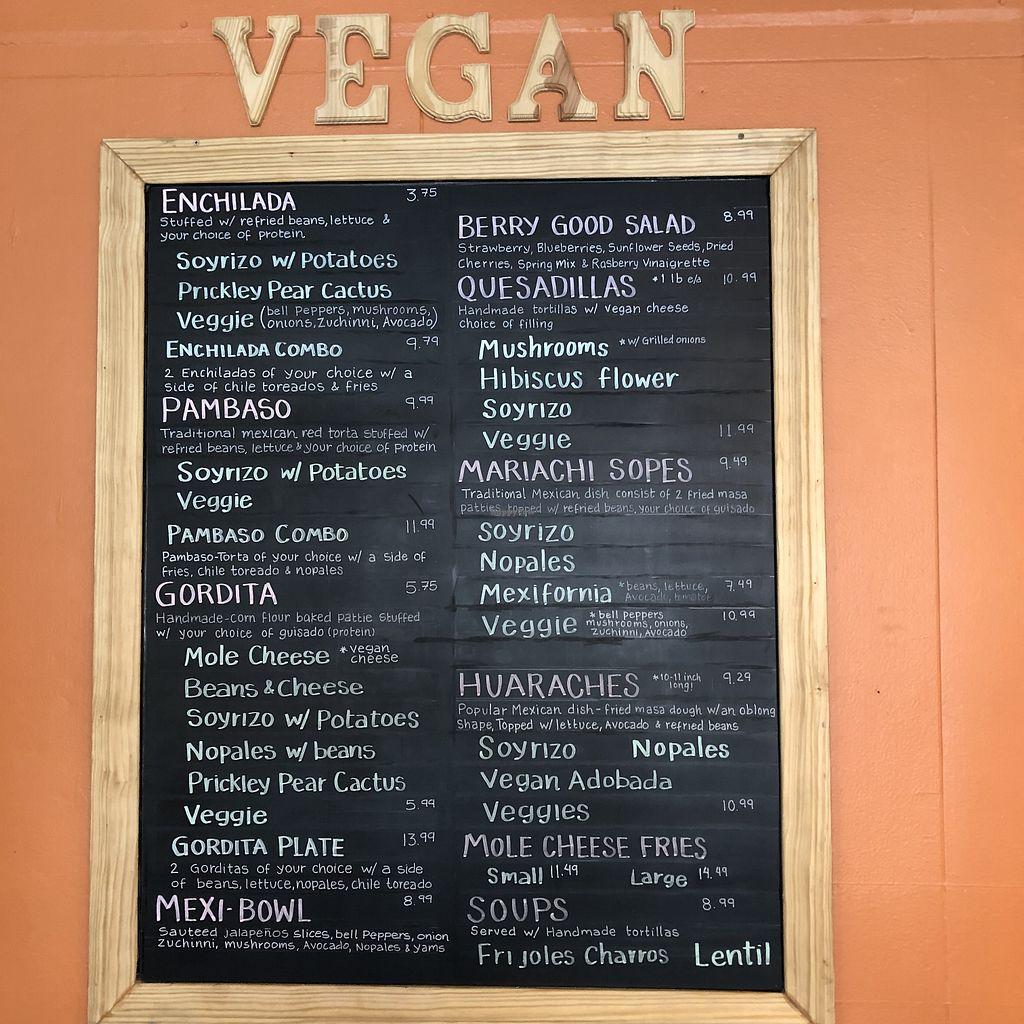 VEGAN
ENCHILADA 3.75
Stuffed w/ refried beans, lettuce &
your choice of protein.
Soyrizo w/ Potatoes
Prickley Pear Cactus
Veggie (bell Peppers, mushrooms,
onions, Zuchinni, Avocado)
ENCHILADA COMBO 9.79
2 Enchiladas of your choice w/ a
side of chile toreados & fries
PAMBASO 9.99
Traditional mexican red torta stuffed w/
refried beans, lettuce & your choice of Protein
Soyrizo w/ Potatoes
Veggie
PAMBASO COMBO 11.99
Pambaso-Torta of your choice w/ a side of
fries, chile toreado & nopales
GORDITA 5.75
Handmade-corn flour baked pattie stuffed
w/ your choice of guisado (protein)
Mole Cheese *vegan
cheese
Beans & Cheese
Soyrizo w/ Potatoes
Nopales w/ beans
Prickley Pear Cactus
Veggie 5.99
GORDITA PLATE 13.99
2 Gorditas of your choice w/ a side
of beans, lettuce, nopales, chile toreado
MEXI-BOWL 8.99
Sauteed jalapeños slices, bell Peppers, onion
Zuchinni, mushrooms, Avocado, Nopales & yams
BERRY GOOD SALAD 8.99
Strawberry, Blueberries, Sunflower Seeds, Dried
Cherries, Spring Mix & Rasberry Vinaigrette
QUESADILLAS *1 lb e/a 10.99
Handmade tortillas w/ vegan cheese
choice of filling
Mushrooms *w/ Grilled onions
Hibiscus flower
Soyrizo
Veggie 11.99
MARIACHI SOPES 9.49
Traditional Mexican dish consist of 2 fried masa
patties, topped w/ refried beans, your choice of guisado
Soyrizo
Nopales
Mexifornia *beans, lettuce, 7.49
Avocado, tomatoe
Veggie *bell peppers 10.99
mushrooms, onions,
Zuchinni, Avocado
HUARACHES *10-11 inch 9.29
long!
Popular Mexican dish-fried masa dough w/an oblong
shape, Topped w/ lettuce, Avocado & refried beans
Soyrizo Nopales
Vegan Adobada
Veggies 10.99
MOLE CHEESE FRIES
Small 11.49 Large 14.49
SOUPS 8.99
Served w/ Handmade tortillas
Frijoles Charros Lentil